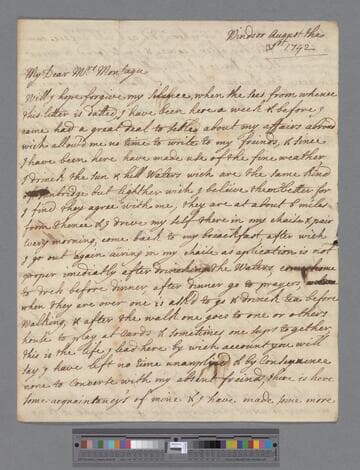 Windsor August the
31st 1742
My Dear Mrs Montagu
Will hope forgive my Silence, when she sees from whence
this letter is dated, I have been here a week & before I
came had a great deal to settle about my affairs
wich allow'd me no time to write to my friends, & since
I have been here have made use of the fine weather
I drink the Sun & hill Waters wich are the same kind
as but lighter wich I believe them better for
I find they agree with me, they are at about 6 miles
from thence & I drive my self there in my chaise & pair
every morning, come back to my breackfast, after wich
I go out again airing in my chaise as aplication is not
proper imediatly after drincking the Waters, come home
to dress before dinner, after dinner go to prayers,
when they are over one is ask'd to go & drinck tea before
Walking, & after the walk one goes to one or others
house to play at Cards & sometimes one sups together,
this is the life I lead here by wich account you will
say I have left no time unemployd & by Consequence
none to Converse with my absent freinds, there is here
some acquaintancys of mine & I have made some more